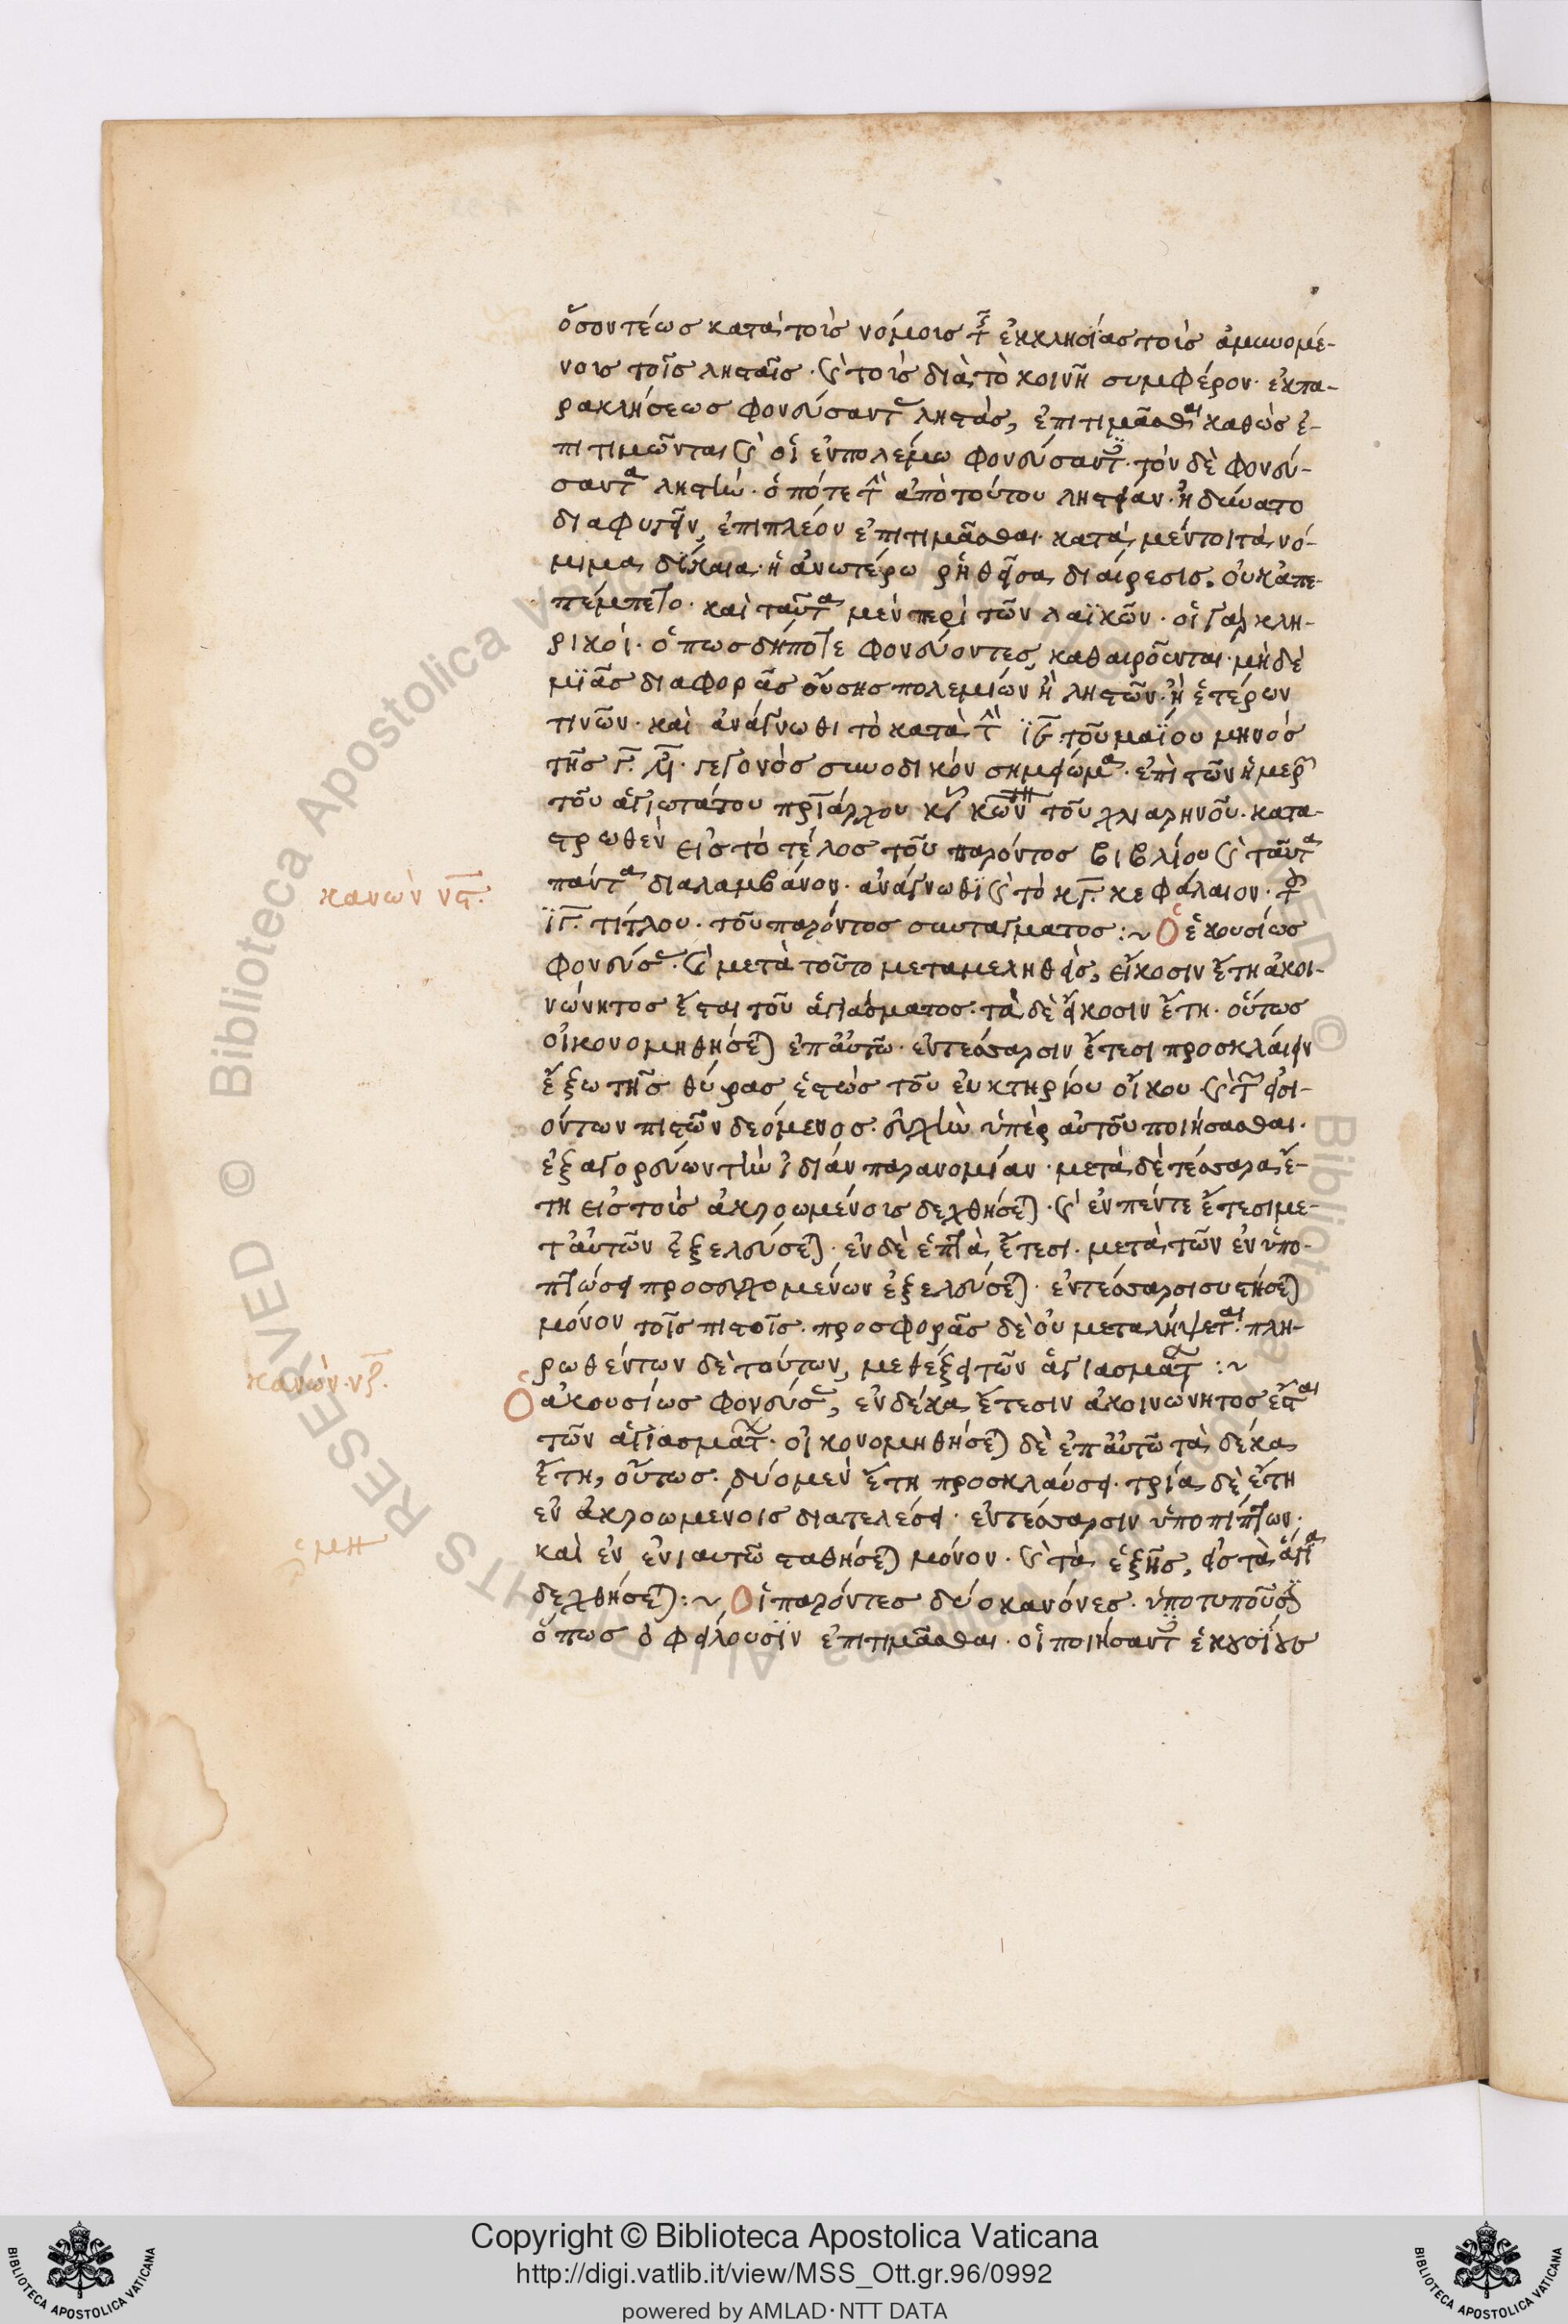 ὅσον τέως κατὰ τοὺς νόμους τῆς ἐκκλησίας τοῖς ἀμυνομέ-
νοις τοῖς λησταῖς· καὶ τοῖς διὰ τὸ κοινῆ συμφέρον· ἐκ πα-
ρακλήσεως φονεύσαντας ληστὰς, ἐπιτιμᾶσθαι καθὼς ἐ-
πιτιμῶνται καὶ οἱ ἐν πολέμω φονεύσαντες· τὸν δὲ φονεύ-
σαντα ληστὴν· ὁπότε τὴν ἀπὸ τούτου ληστείαν· ἠδύνατο
διαφυγεῖν, ἐπιπλέον ἐπιτιμᾶσθαι· κατὰ μέντοι τὰ νό-
μιμα δίκαια· ἡ ἀνωτέρω ῥηθεῖσα διαίρεσις. οὐκ ἀπε-
πέμπετο· καὶ ταῦτα μὲν περὶ τῶν λαϊκῶν· οἱ γὰρ κλη-
ρικοί· ὁπωσδήποτε φονεύοντες, καθαιροῦνται· μὴ δὲ
μϊᾶς διαφορᾶς οὔσης πολεμίων ἢ ληστῶν· ἢ ἑτέρων
τινῶν· καὶ ἀνάγνωθι τὸ κατὰ τὴν ϊϛ τοῦ μαΐου μηνὸς
τῆς γ. ἰνδ. γεγονὸς συνοδικὸν σημείωμα· ἐπὶ τῶν ἡμερῶν
τοῦ ἁγιωτάτου πριάρχου κυροῦ κων τοῦ χλιαρηνοῦ· κατα-
στρωθὲν εἰς τὸ τέλος τοῦ παρόντος βιβλίου καὶ ταῦτα
πάντα διαλαμβάνον· ἀνάγνωθϊ καὶ τὸ κγ. κεφάλαιον· τοῦ
κανὼν νϛ.
ϊγ. τίτλου· τοῦ παρόντος συντάγματος :~ Ὁ ἑκουσίως
φονεύσας· καὶ μετὰ τοῦτο μεταμεληθεὶς, εἴκοσιν ἔτη ἀκοι-
νώνητος ἔσται τοῦ ἁγιάσματος· τὰ δὲ εἴκοσιν ἔτη· οὕτως
οἰκονομηθήσεται ἐπ' αὐτῶ· ἐν τέσσαρσιν ἔτεσι προσκλαίειν
ἔξω τῆς θύρας ἑστὼς τοῦ εὐκτηρίου οἴκου καὶ τῶν εἰσι-
όντων πιστῶν δεόμενος· εὐχὴν ὑπὲρ αὐτοῦ ποιήσασθαι·
ἐξαγορεύων τὴν ἰδίαν παρανομίαν· μετὰ δὲ τέσσαρα ἔ-
τη εἰς τοὺς ἀκροωμένους δεχθήσεται· καὶ ἐν πέντε ἔτεσι με-
τ' αὐτῶν ἐξελεύσεται· ἐν δὲ ἑπτὰ ἔτεσι· μετὰ τῶν ἐν ὑπο-
πτώσει προσευχομένων ἐξελεύσεται· ἐν τέσσαρσι συστήσεται
μόνον τοῖς πιστοῖς· προσφορᾶς δὲ οὐ μεταλήψεται· πλη-
ρωθέντων δὲ τούτων, μεθέξει τῶν ἁγιασμάτων :~
κανὼν· νζ.
Ὁ ἀκουσίως φονεύσας, ἐν δέκα ἔτεσιν ἀκοινώνητος ἔσται
τῶν ἁγιασμάτων· οἰκονομηθήσεται δὲ ἐπ' αὐτῶ τὰ δέκα
ἔτη, οὕτως· δύο μὲν ἔτη προσκλαύσει· τρία δὲ ἔτη
ἐν ἀκροωμένοις διατελέσει· ἐν τέσσαρσιν ὑποπίπτων·
καὶ ἐν ἐνιαυτῶ σταθήσεται μόνον· καὶ τὰ ἑξῆς, εἰς τὰ ἅγια
ἑρμη
δεχθήσεται :~ Οἱ παρόντες δύο κανόνες· ὑποτυποῦσιν
ὅπως ὀφείλουσϊν ἐπιτιμᾶσθαι· οἱ ποιήσαντες ἑκουσίους